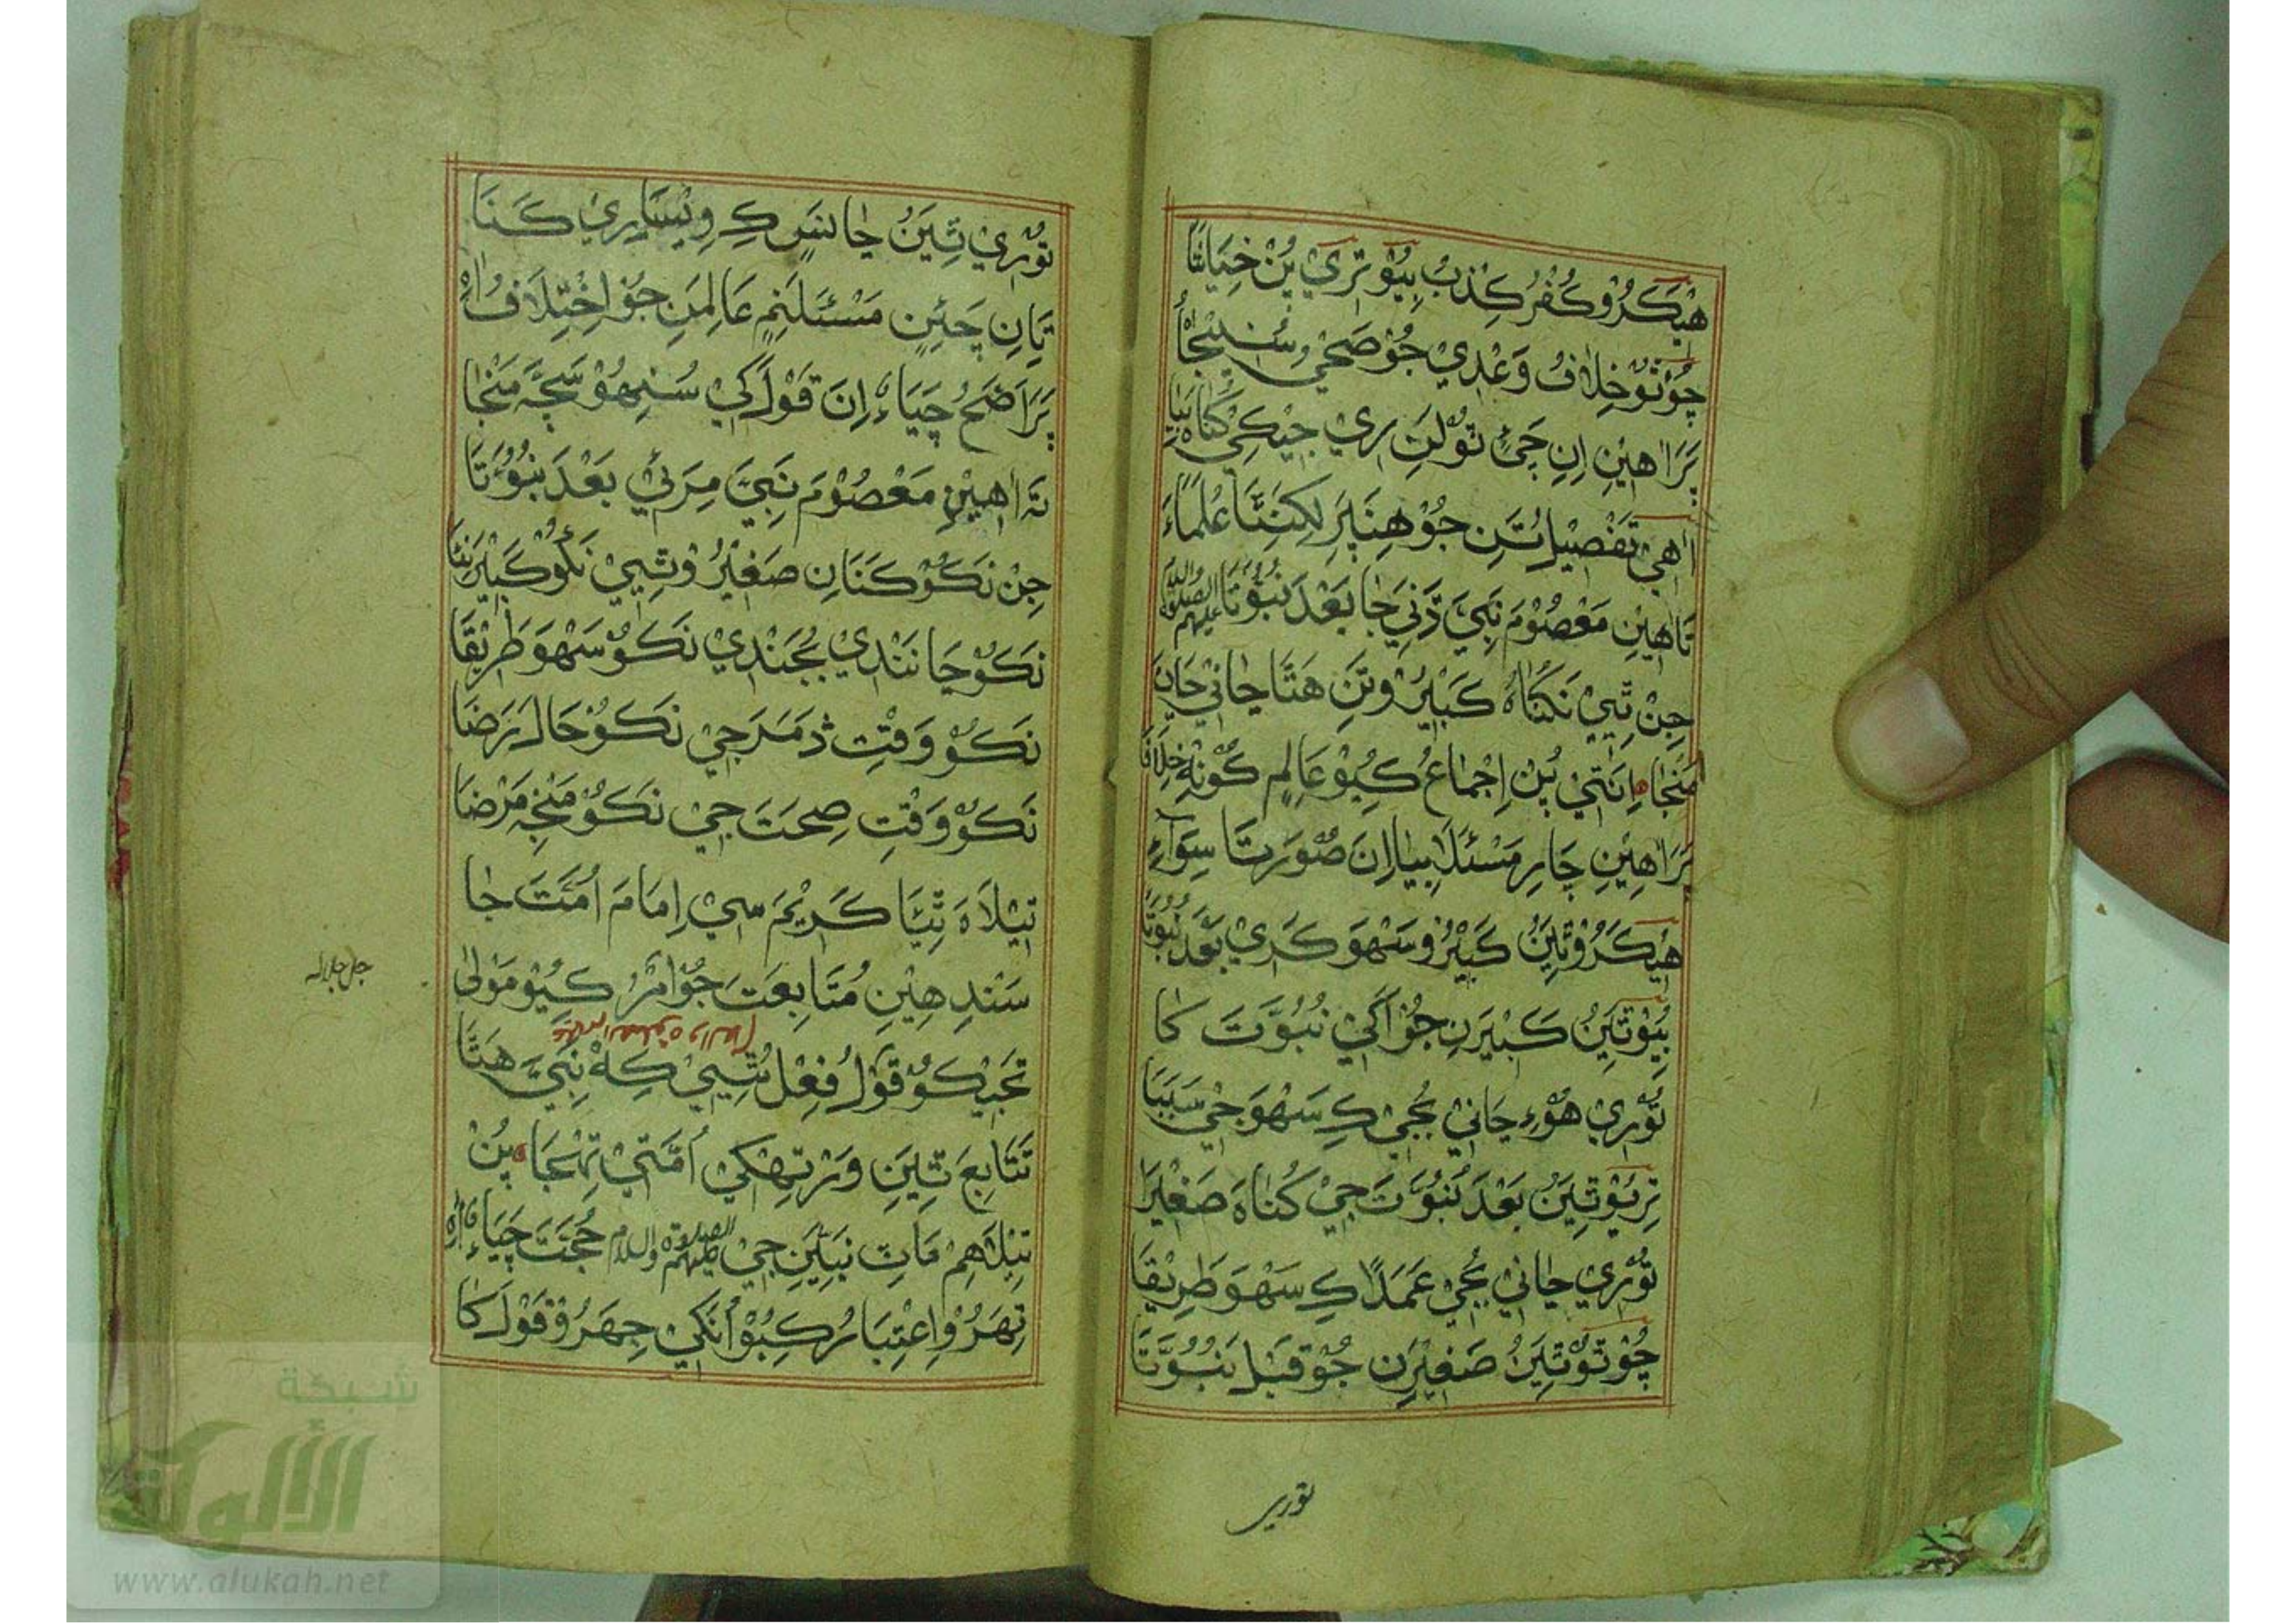 هيكڙو ڪفر ڪذب ٻيو ٽري پڻ خيانتا
چوٿو خلاف وعدي جو صحي سنيجا
پر آهين اِن چئ تولت ري جيڪي گناه ٻيا
آهي تفصيل تن جو هنپر لکنتا علماء
تاهين معصوم نبي ڏني جا بعد نبوتا عليهم الصلوة والسلام
جن ٿيي نگناه ڪبير وتن هتا جاني ڄاڻ
منجا انتي پڻ اجماع ڪيو عالم ڪونه خلافا
پر آهين چار مسئلا ٻيا اِن صورتا سواء
هيڪڙو ٿين ڪبير وسهو ڪري بعد نبوتا
ٻيو ٿين ڪبيرن جو اڳي نبوت کا
توري هوء ڄاڻي ٻجي ڪ سهو جي سببا
ٽريو ٿين بعد نبوت جي گناه صغيرا
توري ڄاڻي ٻجي عمدا ڪ سهو طريقا
چوٿو ٿين صغيرن جو قبل نبوتا
توري
توري ٿين ڄا نس ڪ وساري ڪنا
تان چئن مسئلنم عالمن جو اختلاف آه
پر اصح چياء ان قول کي سنيهو سڄه منجا
ته آهين معصوم نبي مرئي بعد نبوتا
جن نڪو ڪنان صغير و ٿيي نڪو ڪبير نتا
نڪو ڄا نندي ٻجندي نڪو سهو طريقا
نڪو وقت ڏمر جي نڪو حال رضا
نڪو وقت صحت جي نڪو منجه مرضا
تيلاه ٿيا ڪريم سي امام امت جا
سند هين متابعت جو امر ڪيو مولى
جل جلاله
تجيڪو قول فعل ٿيي ڪه نبي هتا عليهم الصلوة والسلام
تتابع ٿين ور تهکي امتي تهنجا پڻ
تيلاهم مات نبين جي عليهم الصلوة والسلام حجت چياء آه
تهڙو اعتبار ڪبو انکي جهڙو قول کا
شبكة
الألوكة
www.alukah.net